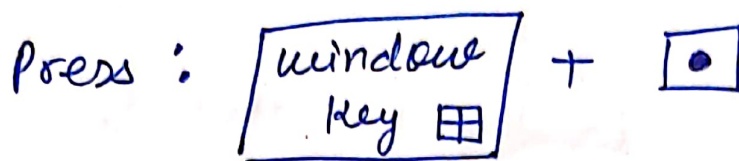 Press : window + .
key ⊞